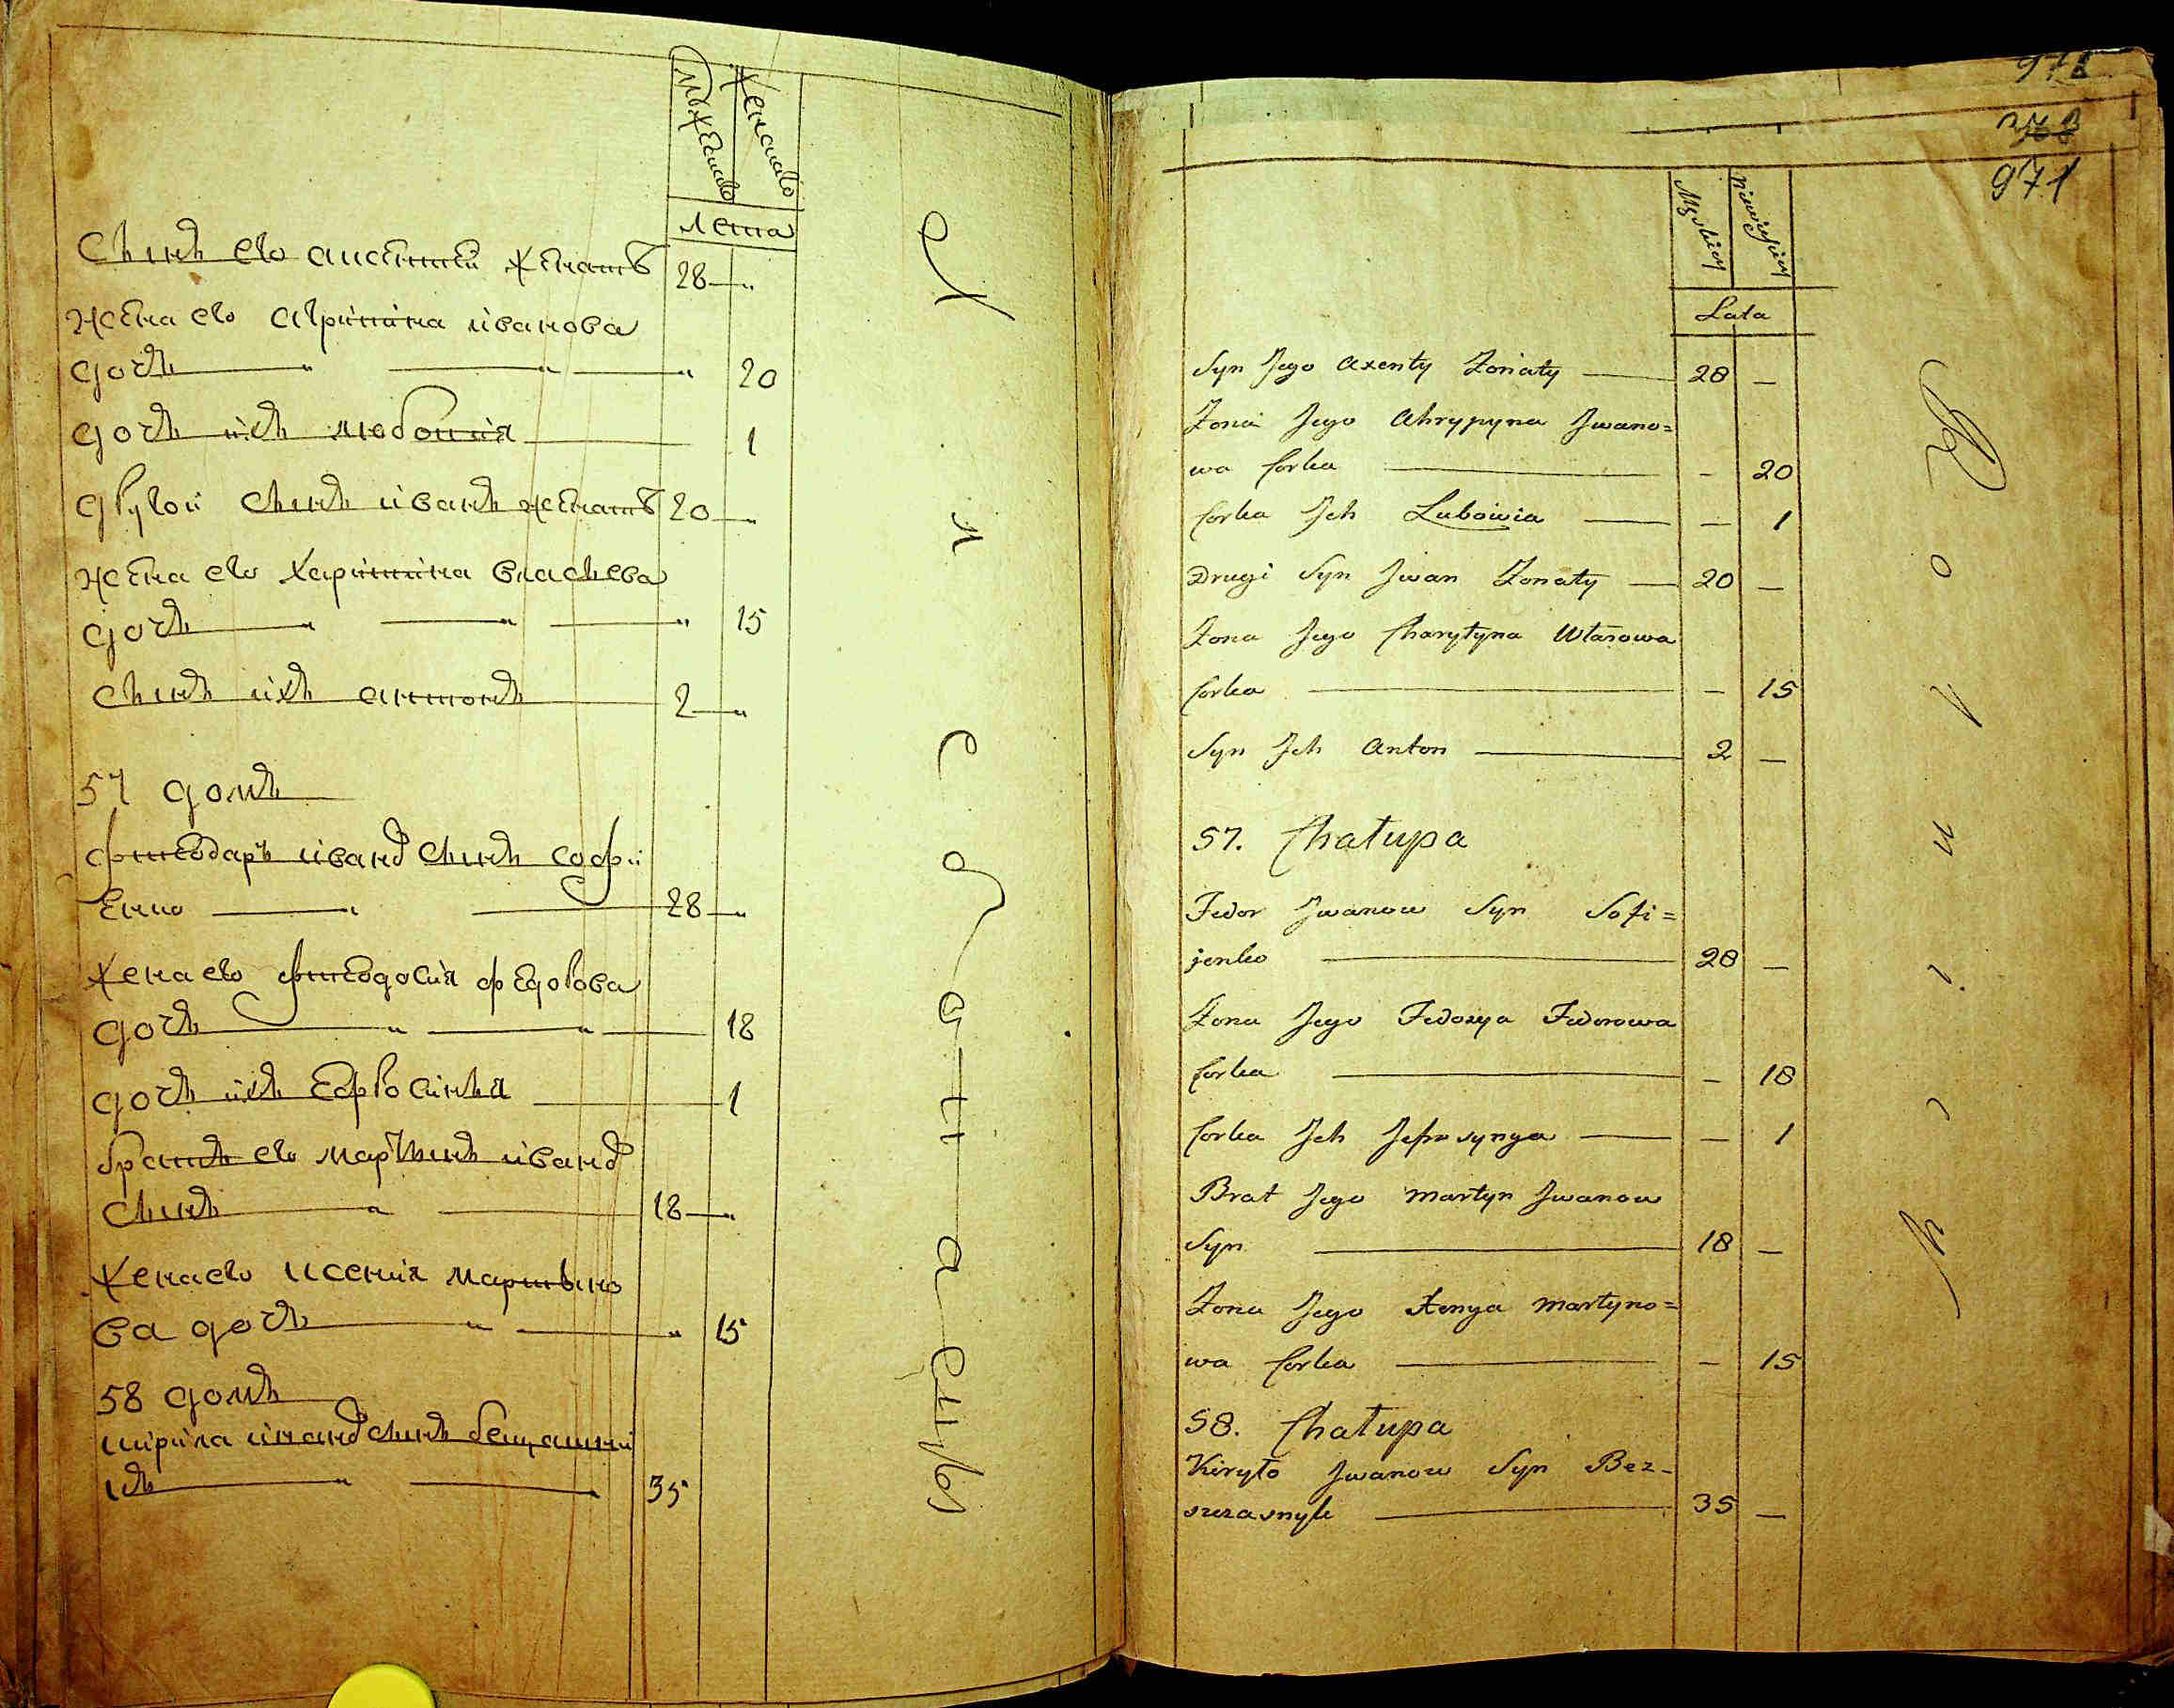 Мужеска
Женска
Лета
Сынъ его аксентей женатъ 28
жена его агрипина иванова
дочъ 20
дочъ ихъ любовия 1
другои сынъ иванъ женатъ 20
жена его харитина власьева
дочъ 15
сынъ ихъ антонъ 2
57 домъ
феодаръ ивановъ сынъ софи
енко 28
жена его феодосия федорова
дочъ 18
дочъ ихъ Ефросинья 1
братъ его мартынъ ивановъ
сынъ 18
жена его ксения мартыно
ва дочъ 15
58 домъ
кирила ивановъ сынъ безщасни
къ 35
971
Męzkiey
Niewieściey
Lata
Syn Jego Axenty Żonaty 28 —
Żona Jego Ahrypyna Jwano=
wa Corka — 20
Corka Jch Lubowia — 1
Drugi Syn Jwan Żonaty 20 —
Żona Jego Charytyna Własowa
Corka — 15
Syn Jch Anton 2 —
57. Chałupa
Fedor Jwanow Syn Sofi=
jenko 28 —
Żona Jego Fedosya Fedorowa
Corka — 18
Corka Jch Jefrosynya — 1
Brat Jego Martyn Jwanow
Syn 18 —
Żona Jego Xenya Martyno=
wa Corka — 15
58. Chałupa
Kiryło Jwanow Syn Bez-
szczasnyk 35 —
Rolnicy